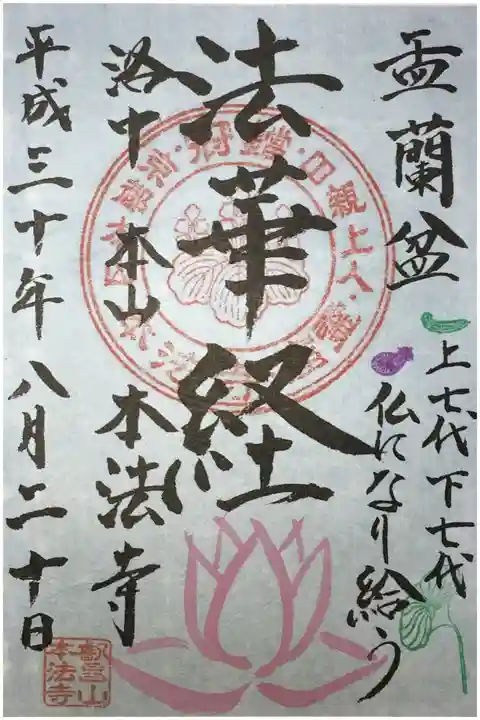 盂蘭盆
上七代下七代
仏になり給う
法華経
洛中 本山 本法寺
平成三十年八月二十日
叡昌山
本法寺